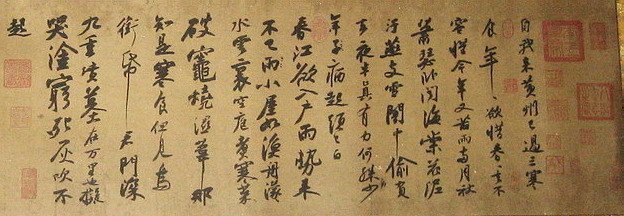 自我來黃州已過三寒
食年〻欲惜春春去不
容惜今年又苦雨兩月秋
蕭瑟卧聞海棠花泥
汙燕支雪闇中偷負
去夜半真有力何殊少
年子病起頭已白
春江欲入户雨勢來
不已雨小屋如漁舟濛〻
水雲裏空庖煮寒菜
破竈燒濕葦那
知是寒食但見烏
銜帋君門深
九重墳墓在万里也擬
哭塗窮死灰吹不
起